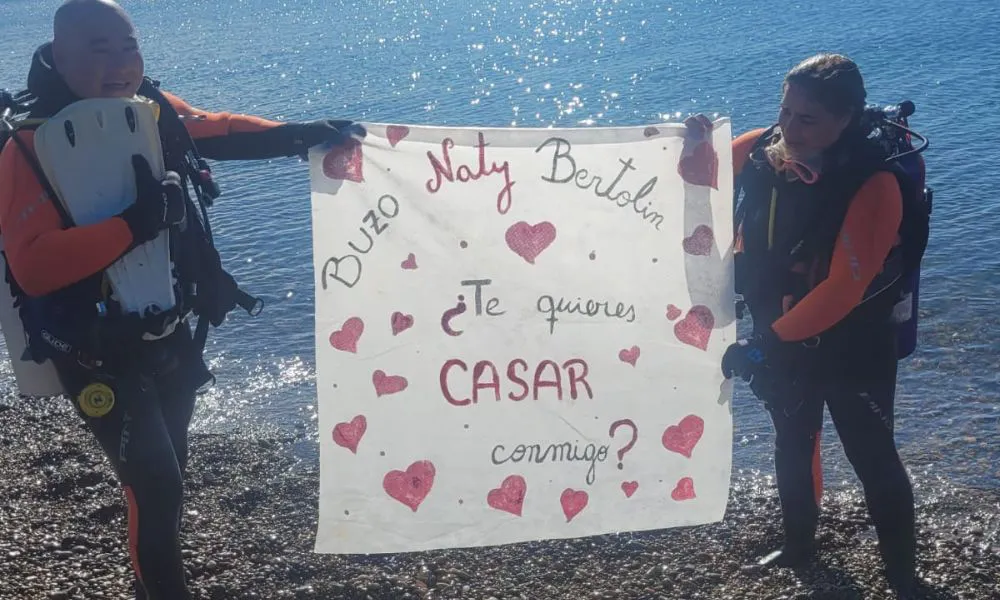 Buzo
Naty Bertolin
¿Te quieres
CASAR
conmigo?